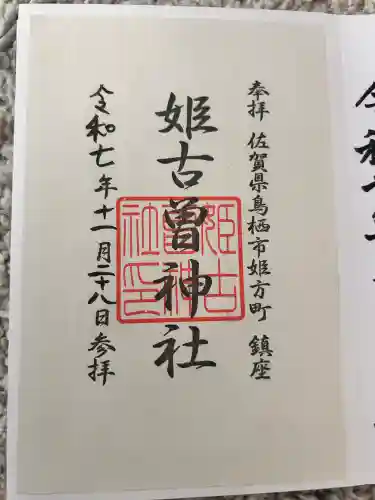 奉拝 佐賀県鳥栖市姫方町 鎮座
姫古曽神社
令和七年十一月二十八日参拝
姫古
曽神
社印